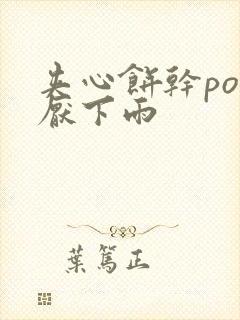 夹心餅幹po
厭下雨
葉篤正